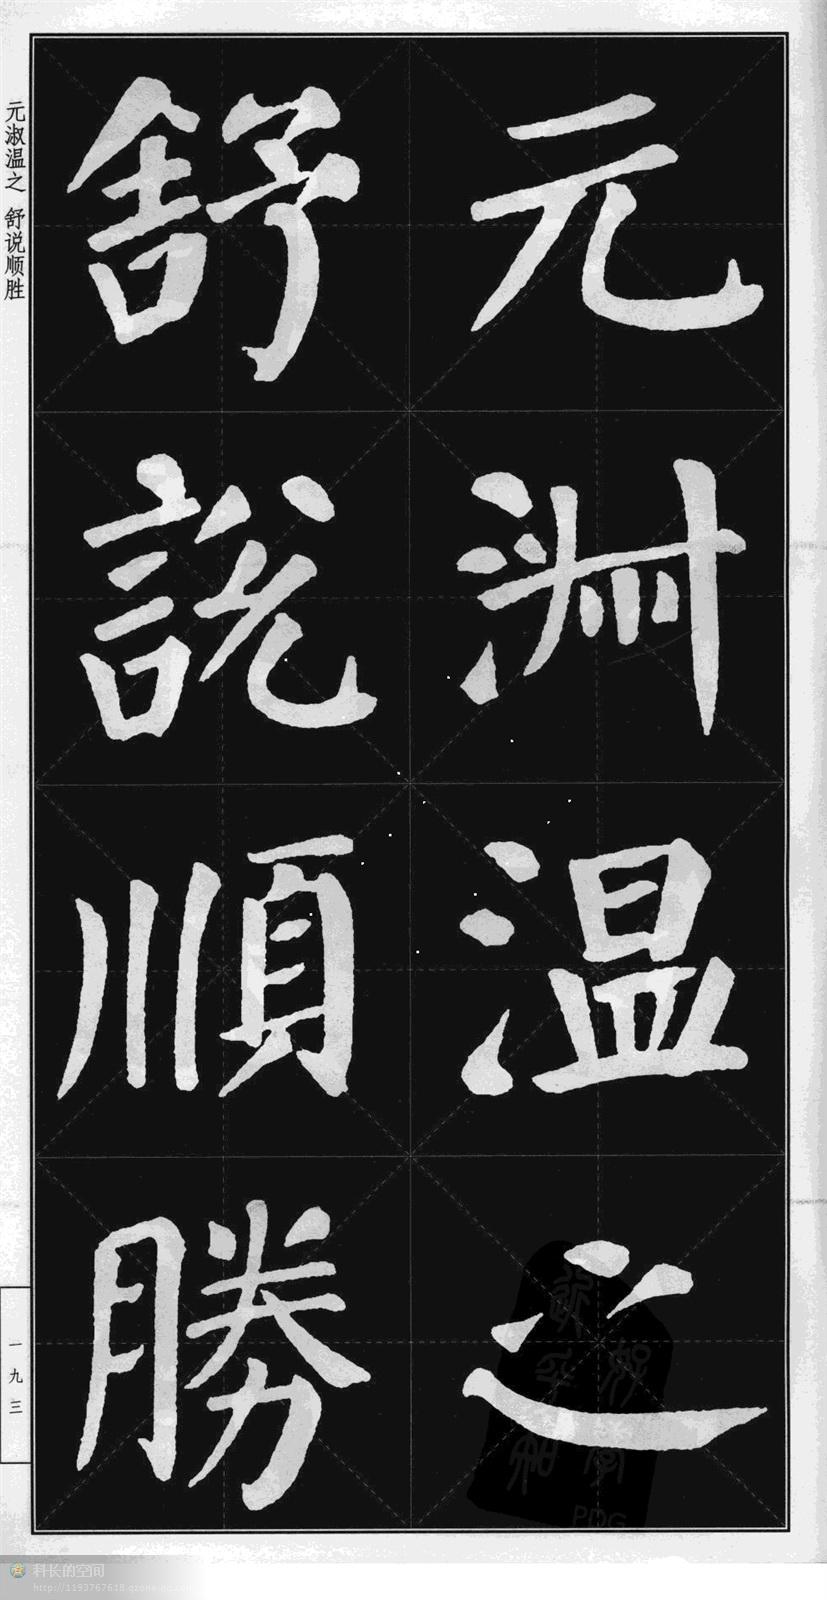 元淑温之
舒說順勝
元淑温之 舒说顺胜
一九三
PDG
科长的空间
http://1193767618.qzone.qq.com